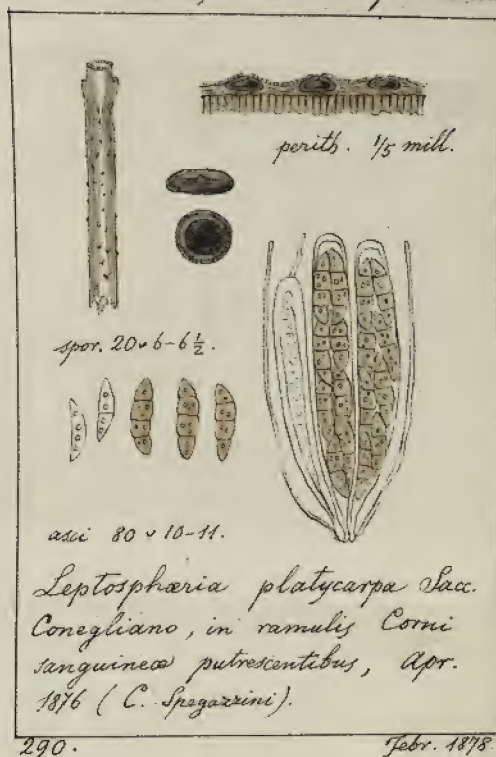 perith. 1/5 mill.
spor. 20 v 6-6½.
asci 80 v 10-11.
Leptosphæria platycarpa Sacc.
Conegliano, in ramulis Corni
sanguineæ putrescentibus, Apr.
1876 (C. Spegazzini).
290. Febr. 1878.